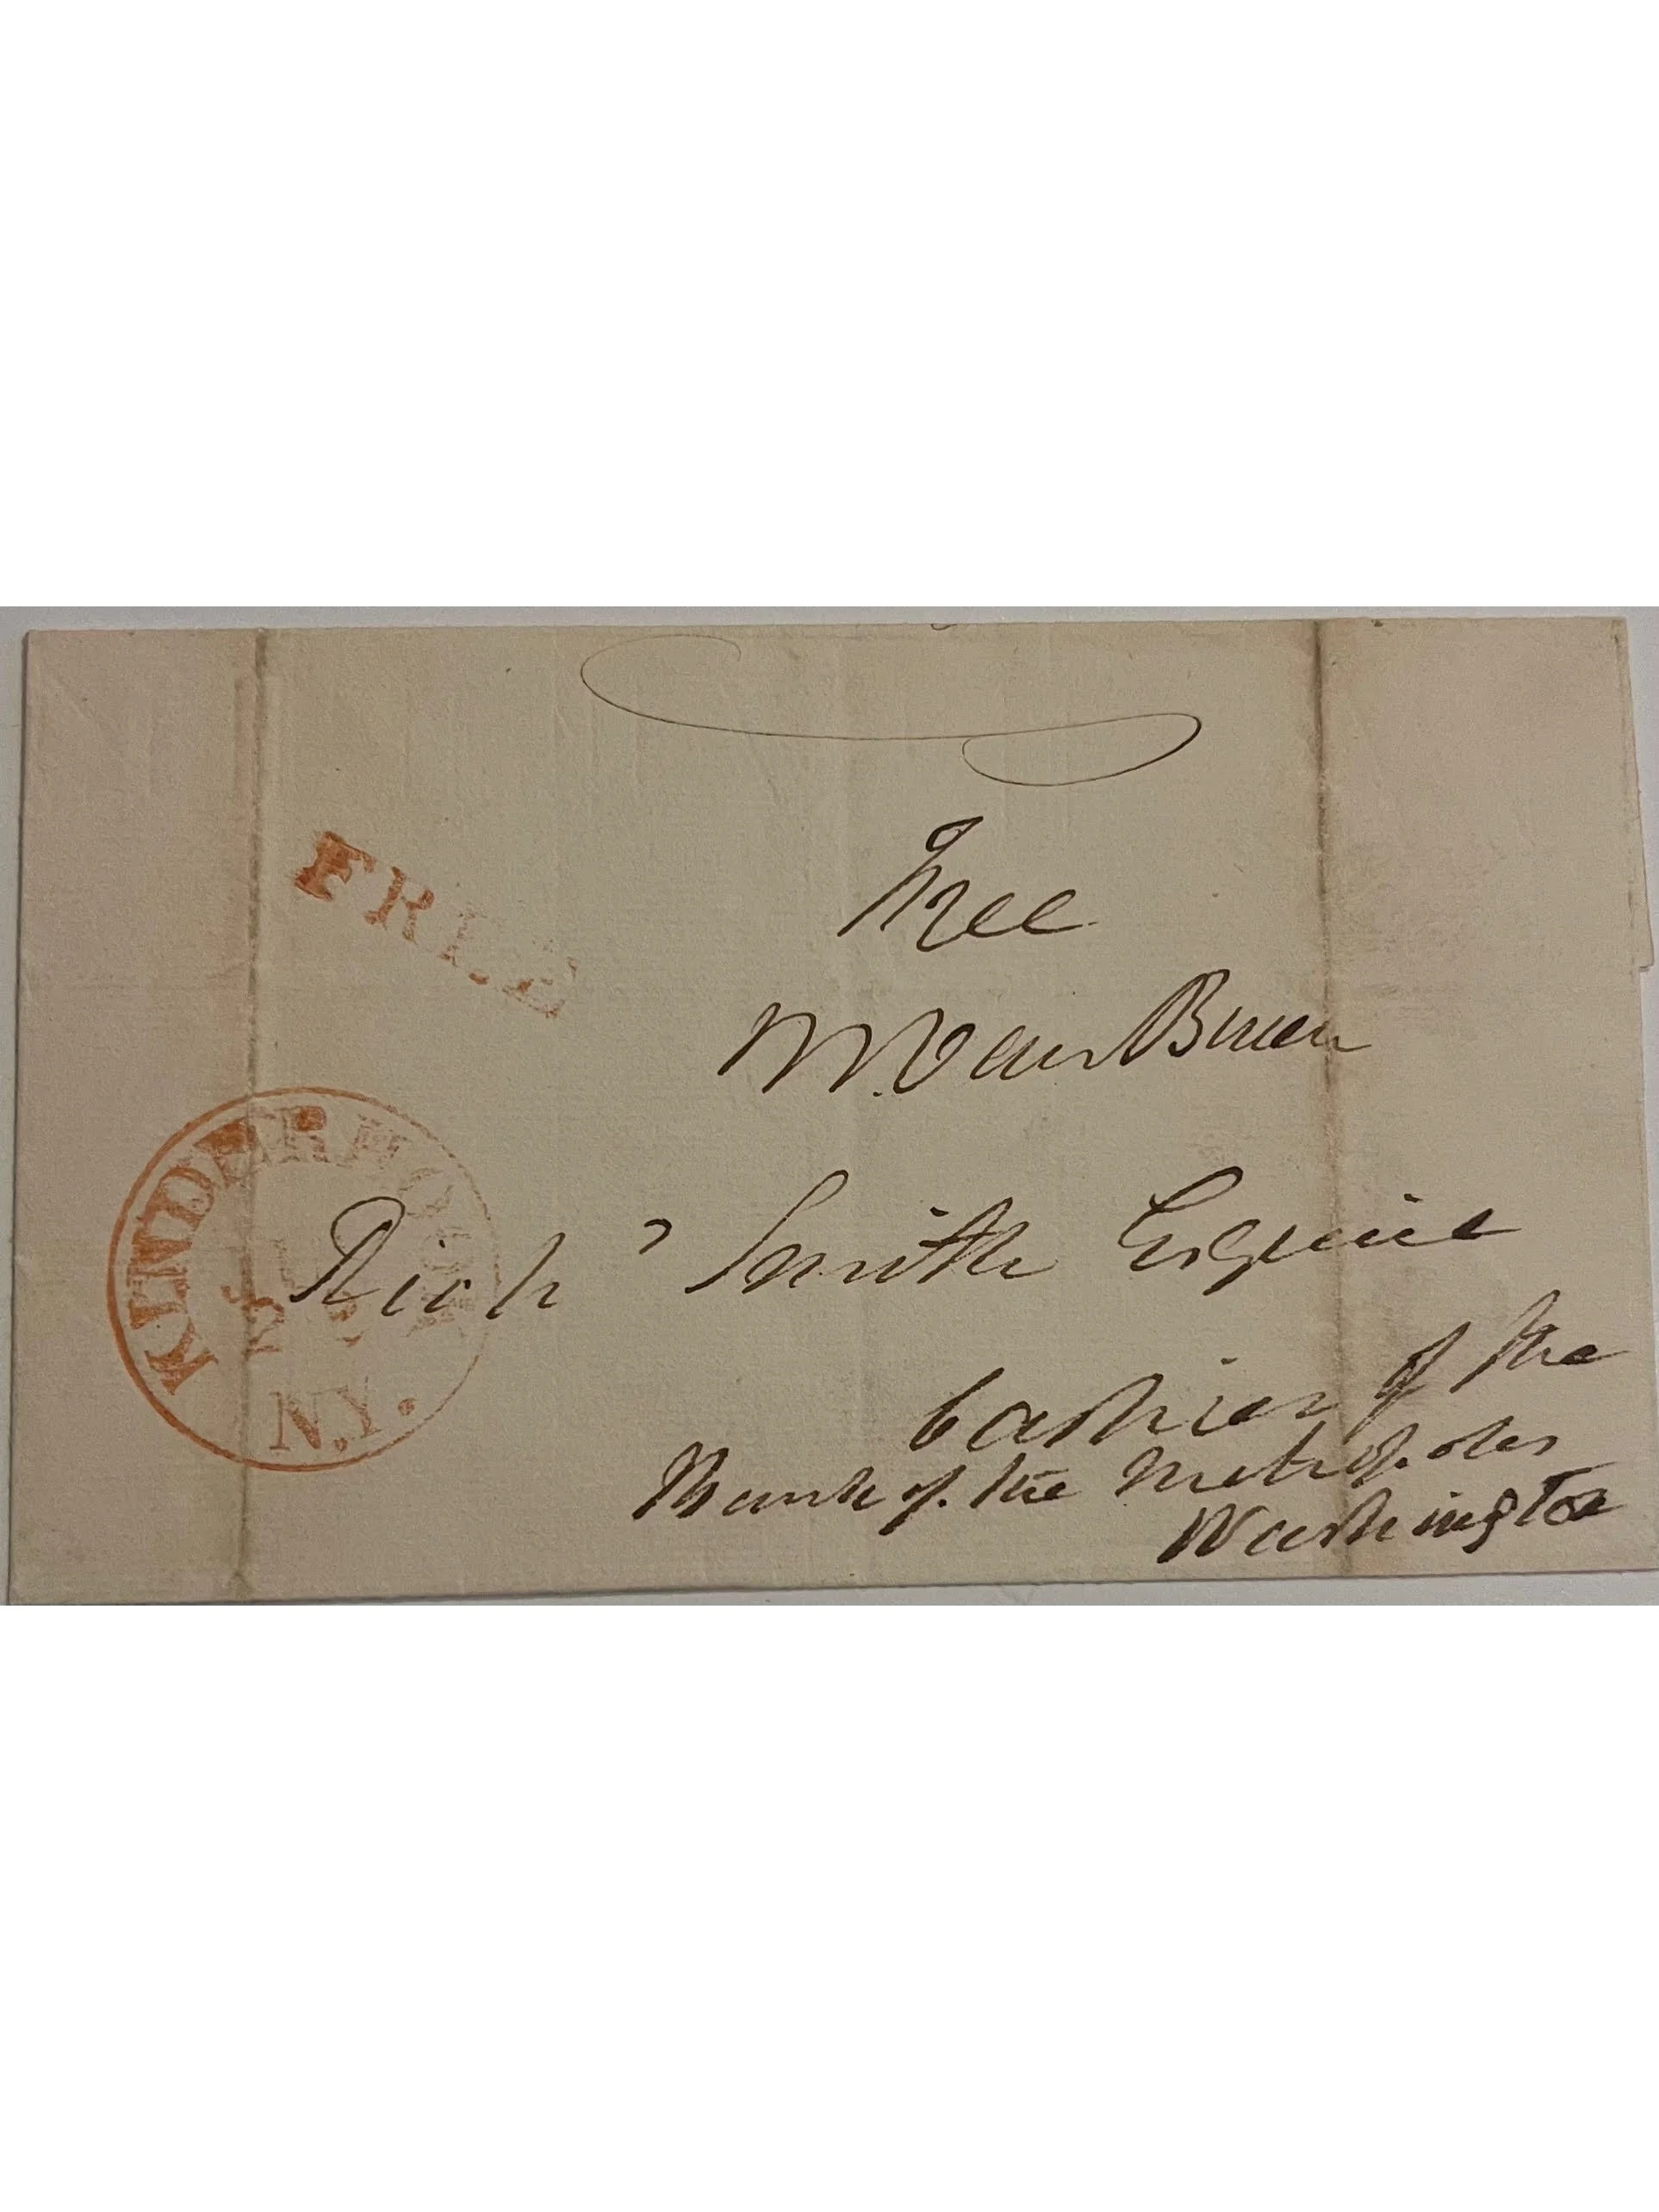 FREE
Free
M. Van Buren
KINDERHOOK
N.Y.
Rich'd Smith Esquire
Cashier of the
Bank of the Metropolis
Washington